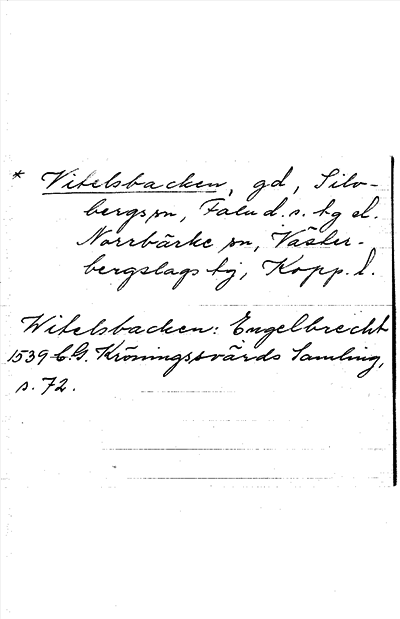 * Vitelsbacken, gd, Silv-
bergs sn, Falu d. s. tg el.
Norrbärke sn, Väster-
bergslags tg, Kopp. l.
Witelsbacken: Engelbrecht
1539 C.G. Kröningssvärds Samling,
s. 72.